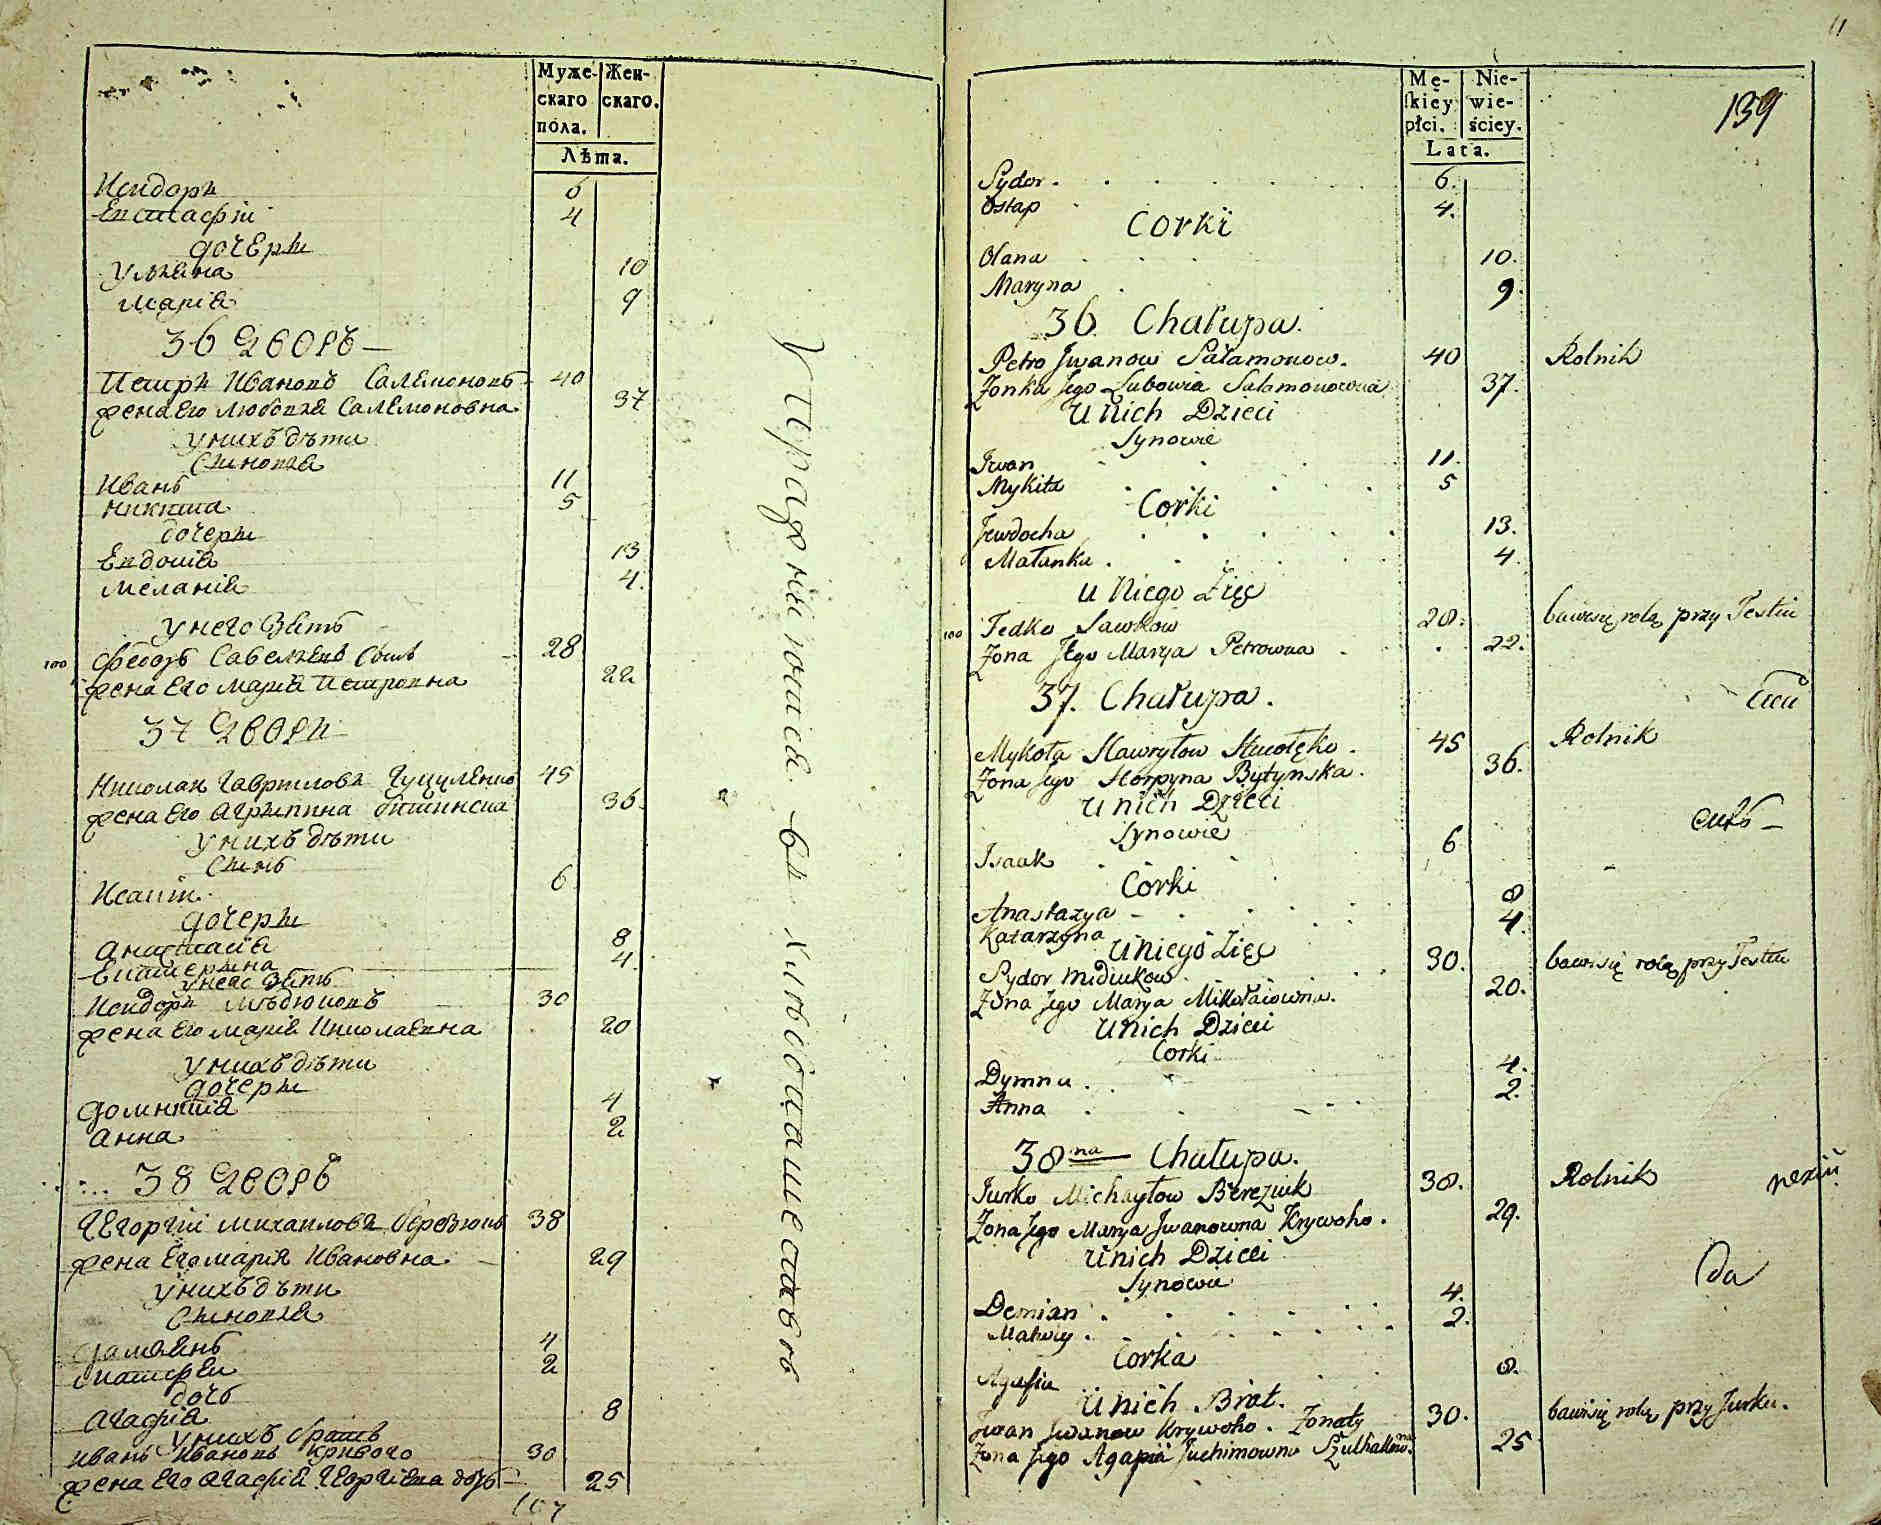 Муже- Жен-
скаго скаго.
пола.
Лѣта.
Исидоръ 6
Евстафій 4
дочеры
Ульяна 10
Марія 9
36 Дворъ
Петръ Ивановъ Саламоновъ 40
жена Его Любовія Саламоновна 37
у нихъ дѣти
Сыновья
Иванъ 11
Никита 5
дочеры
Евдокія 13
Меланія 4.
у него Зять
100 Феодоръ Савельевъ Сынъ 28
жена Его Марія Петровна 22
37 Дворъ
Николай Гавриловъ 45
жена Его Агрипина 36.
у нихъ дѣти
Сынъ
Исакій 6
дочеры
Анастасія 8
Екатерина 4.
у него Зять
Исидоръ Мѣдюковъ 30
жена Его Марія Николаевна 20
у нихъ дѣти
дочеры
Домникія 4
Анна 2
38 Дворъ
Георгій Михайловъ Березюкъ 38
жена Его Марія Ивановна 29
у нихъ дѣти
Сыновья
Дамианъ 4
Матфей 2
дочь
Агафія 8
у нихъ братъ
Иванъ Ивановъ Кривого 30
жена Его Агафія дочь 25
107
11
139
Mę- Nie-
skiey wie-
płci. ściey.
Lata.
Sydor 6.
Ostap 4.
Corki
Olana 10.
Maryna 9.
36 Chałupa.
Petro Jwanow Sałamonow. 40 Rolnik
Zonka Jego Lubowia Salamonowna 37.
U Nich Dzieci
Synowie
Jwan 11.
Mykita 5
Corki
Jewdocha 13.
Małanka 4.
u Niego Zięć
100 Fedko Sawkow 28. bawisię rolą przy Testiu
Zona Jego Marya Petrowna 22.
37. Chałupa.
Mykoła Hawryłow 45 Rolnik
Zona Jego Horpyna Bytynska. 36.
U nich Dzieci
Synowie
Isaak 6
Corki
Anastazya 8
Katarzyna 4.
U niego Zięć
Sydor Midiukow 30. bawisię rolą przy Testiu
Zona Jego Marya Mikołaiowna. 20.
U Nich Dzieci
Corki
Dymna 4.
Anna 2.
38na Chałupa.
Jurko Michayłow Bereziuk 38. Rolnik
Zona Jego Marya Jwanowna Krywoho. 29.
U nich Dzieci
Synowie
Demian 4.
Matwey 2.
Corka
Agafia 8.
U Nich Brat.
Jwan Jwanow Krywoho. Zonaty 30. bawisię rolą przy Jurku.
Zona Jego Agapia Juchimowna 25